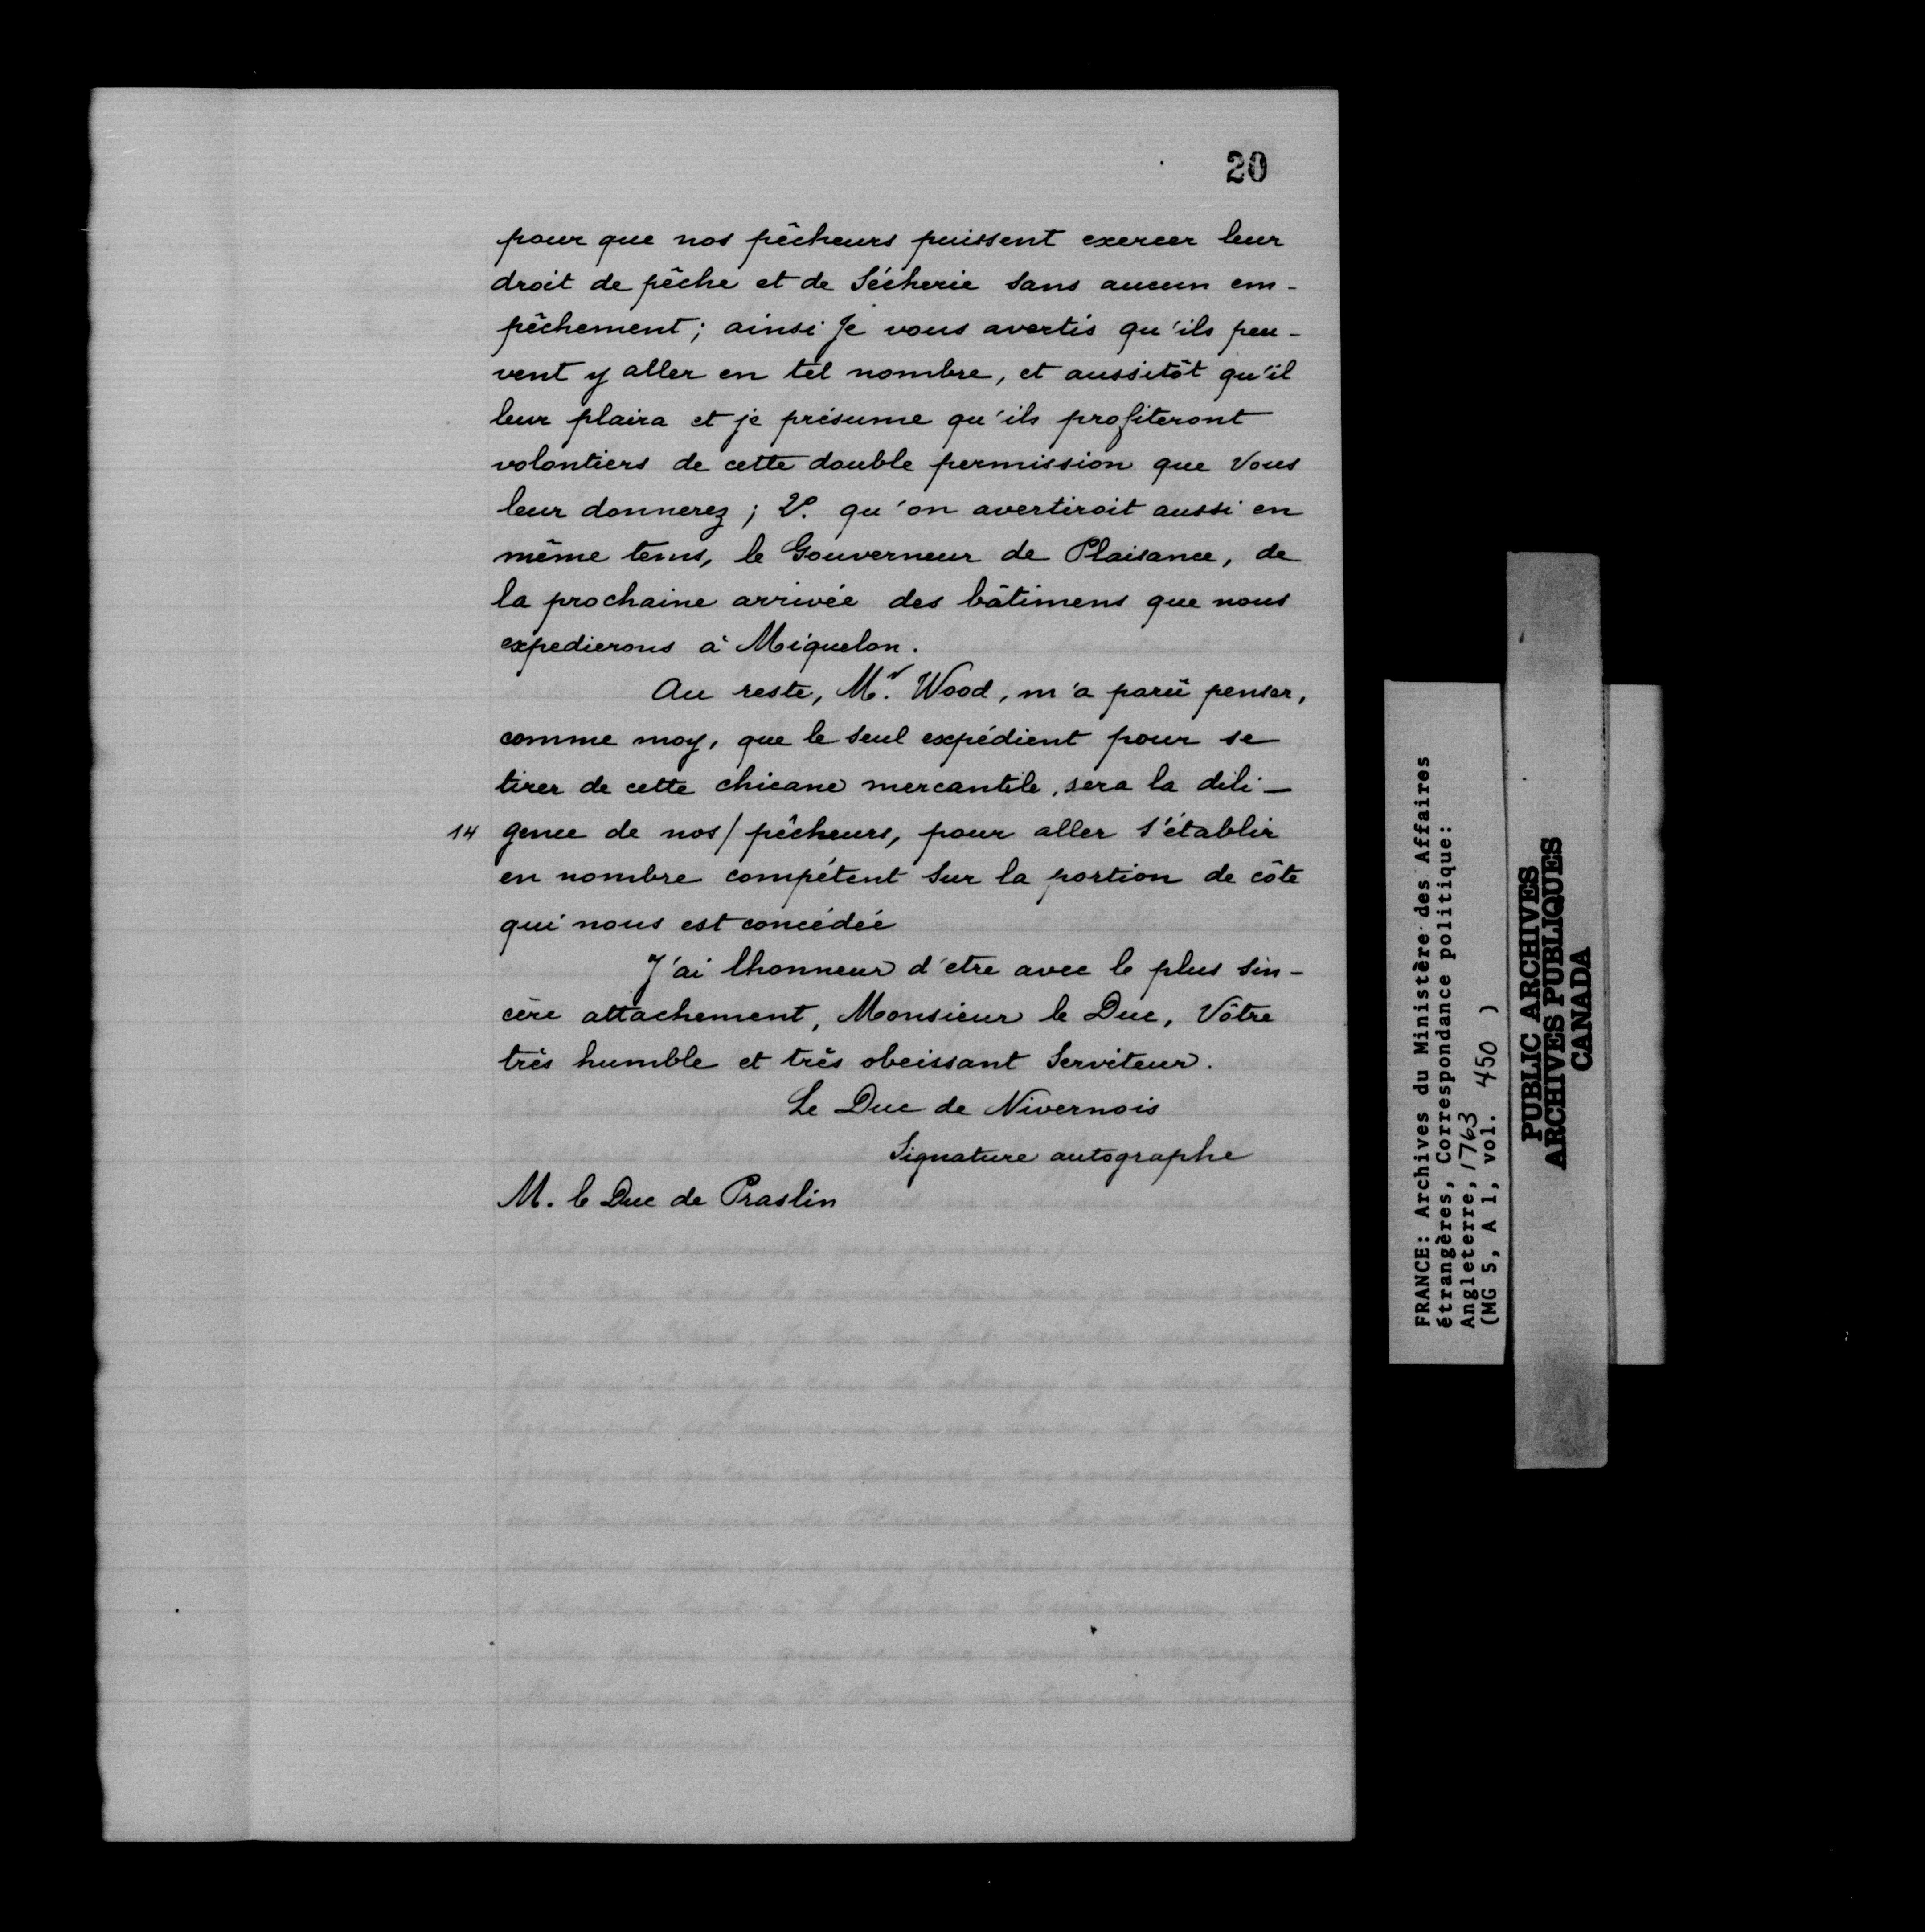 20
pour que nos pêcheurs puissent exercer leur
droit de pêche et de Sécherie sans aucun em-
pêchement; ainsi Je vous avertis qu'ils peu-
vent y aller en tel nombre, et aussitôt qu'il
leur plaira et je présume qu'ils profiteront
volontiers de cette double permission que Vous
leur donnerez; 2º. qu'on avertiroit aussi en
même tems, le Gouverneur de Plaisance, de
la prochaine arrivée des bâtimens que nous
expedierons à Miquelon.
Au reste, Mr. Wood, m'a parû penser,
comme moy, que le seul expédient pour se
tirer de cette chicane mercantile, sera la dili-
14 gence de nos/ pêcheurs, pour aller s'établir
en nombre compétent Sur la portion de côte
qui nous est concédée
J'ai lhonneur d'etre avec le plus sin-
cère attachement, Monsieur le Duc, Vôtre
très humble et très obeissant Serviteur.
Le Duc de Nivernois
Signature autographe
M. le Duc de Praslin
FRANCE: Archives du Ministère des Affaires
étrangères, Correspondance politique:
Angleterre, 1763
(MG 5, A 1, vol. 450 )
PUBLIC ARCHIVES
ARCHIVES PUBLIQUES
CANADA